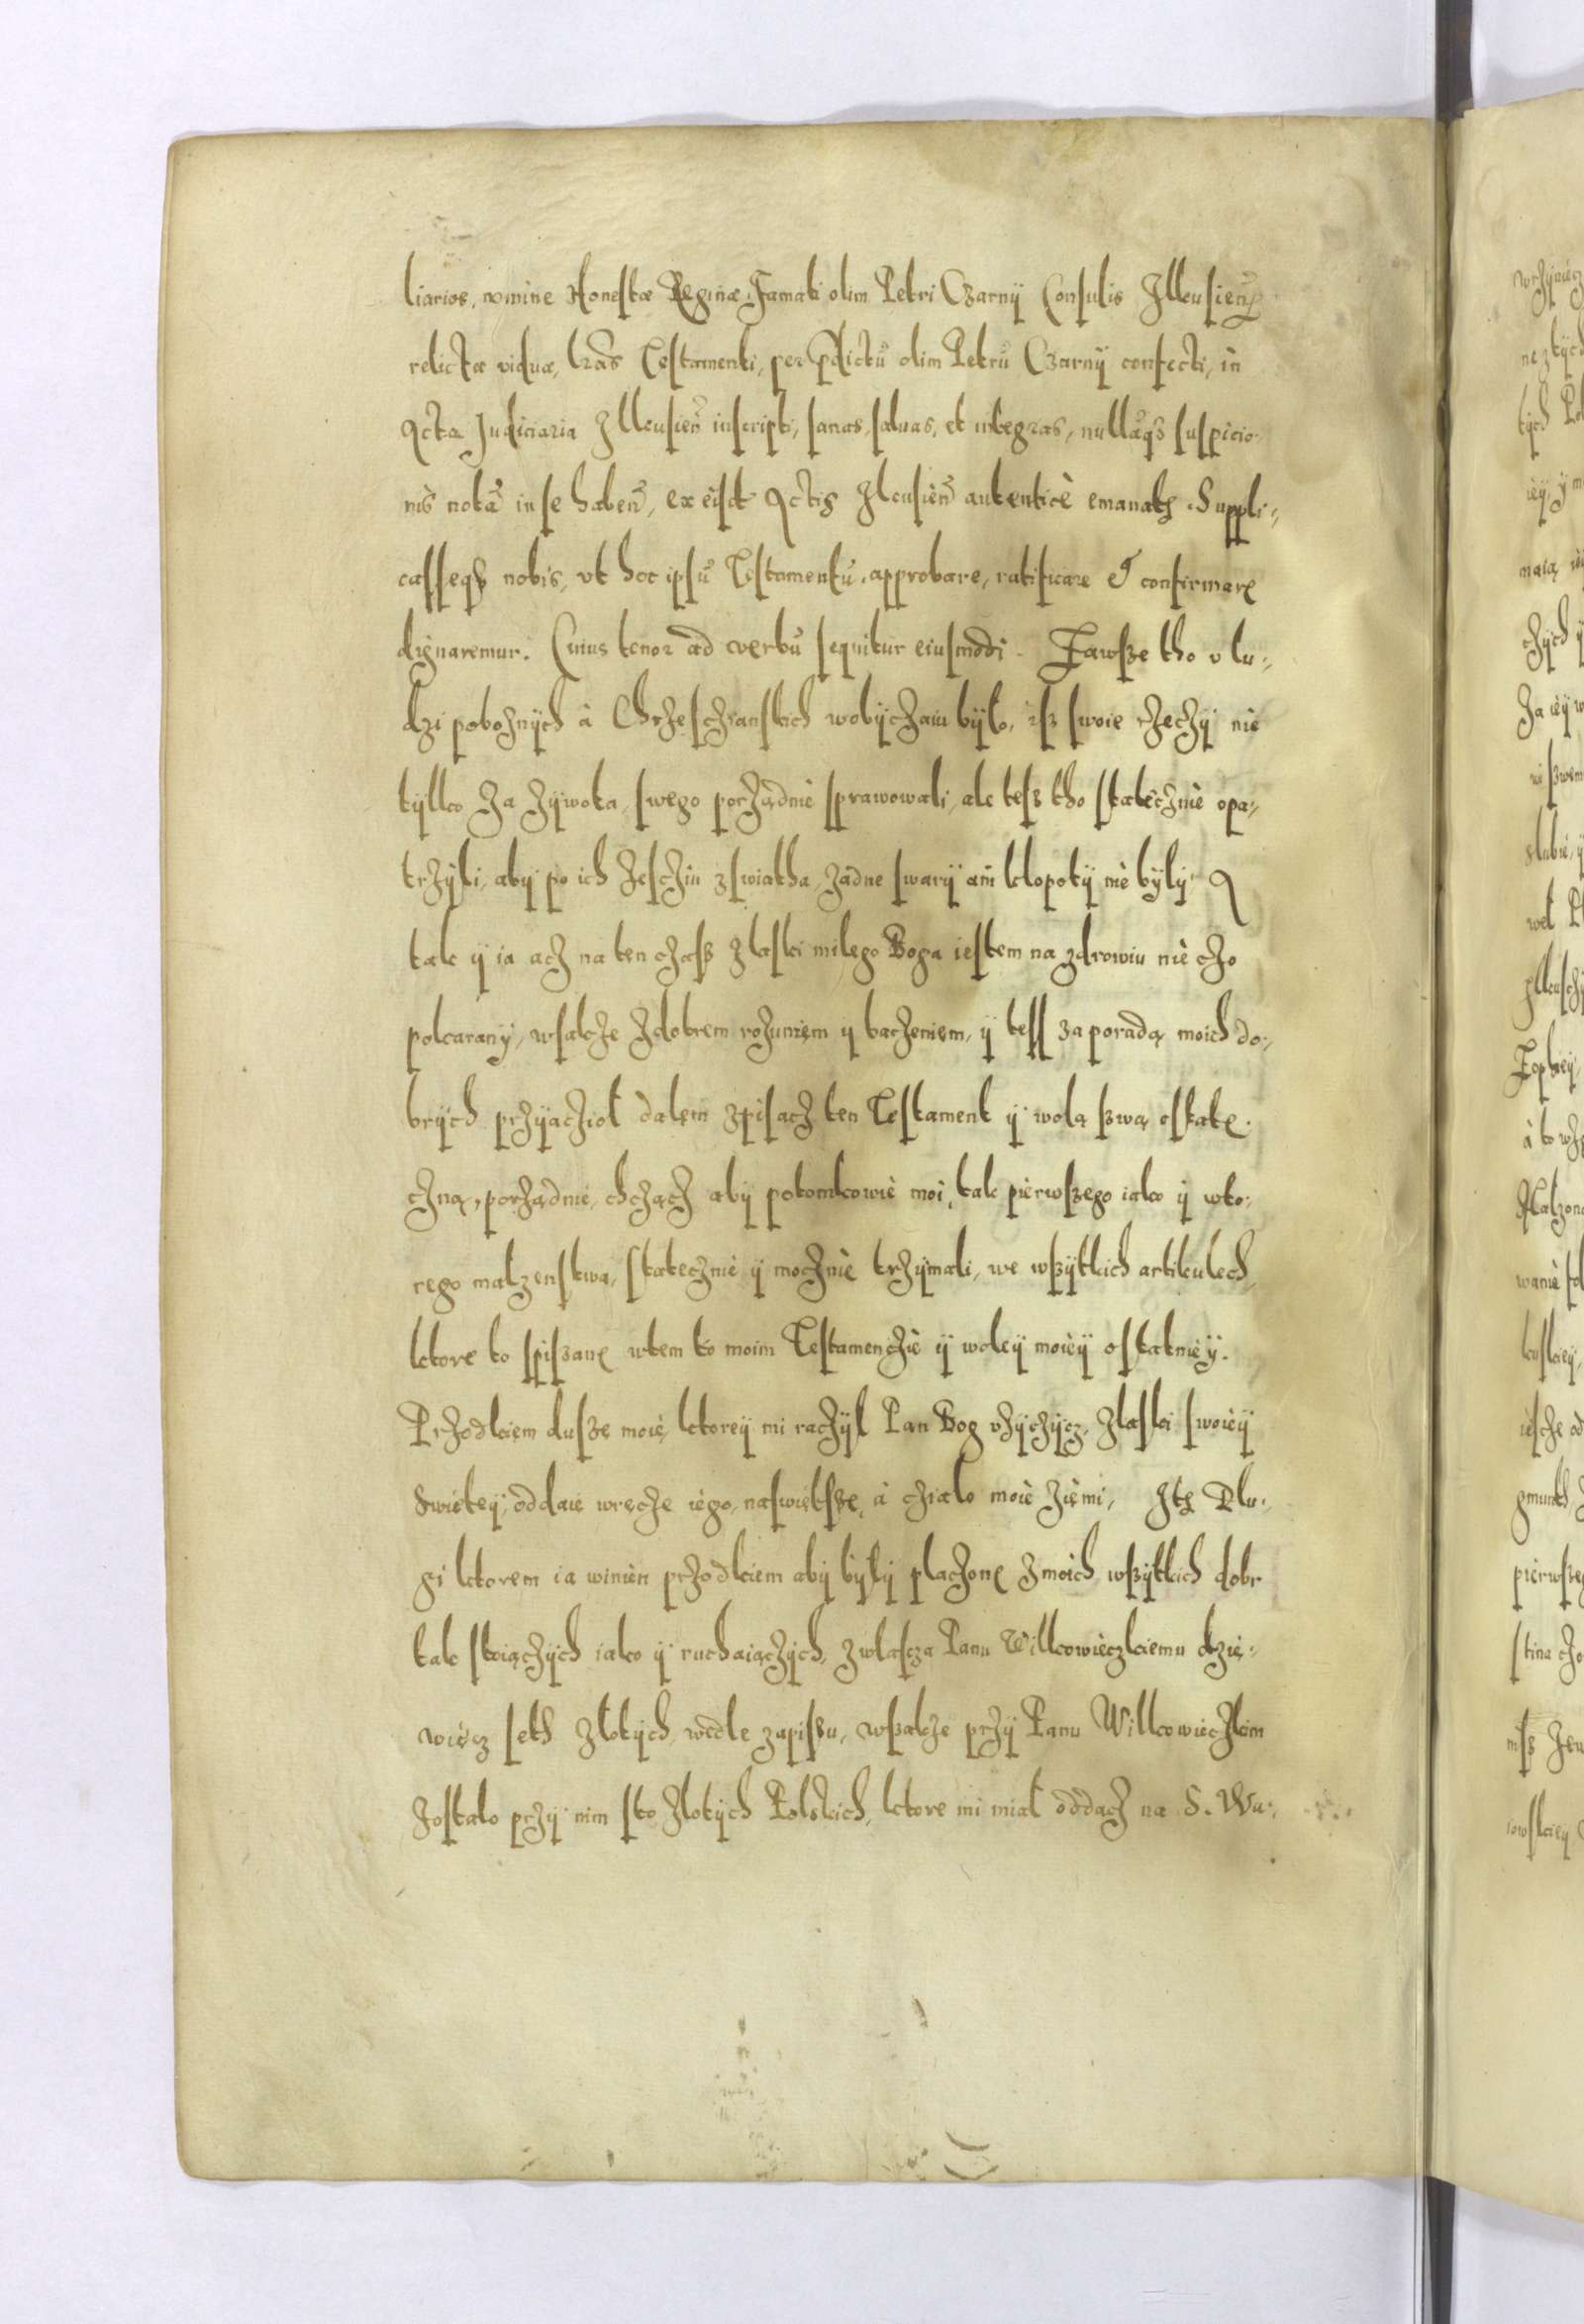 liarios, nomine Honestæ Reginæ, Famati olim Petri Czarnÿ Consulis Ilkusień
relictæ viduæ, lrãs Testamenti, per pdictũ olim Petrũ Czarnÿ confecti, in
Acta Judiciaria Ilkusień inscripti, sanas, saluas, et integras, nullãqȝ suspicio-
nis notã in se haben̄, ex eisd Actis Ilkusien̄ autenticè emanatę. Suppli-
casseqȝ nobis, vt hoc ipsũ Testamentũ, approbare, ratificare & confirmare
dignaremur. Cuius tenor ad verbũ sequitur eiusmodi. Zawsze tho v lu-
dzi pobożnÿch à Chrzeschianskich wobÿczaiu bÿlo, isz swoie rzeczÿ nie
tÿlko za zÿwota swego porządnie sprawowali, ale tesz tho statecznie opa-
trzÿli, abÿ po ich zesczÿu zswiatha, żadne swarÿ ani klopotÿ nie bÿlÿ. A
tak ÿ ia acz na ten czasz z laski milego Boga iestem na zdrowiu nieczo
pokaranÿ, wsakże z dobrem rozumem ÿ baczeniem, ÿ tess za poradą moich do-
brÿch przÿacziol dalem zpisacz ten Testament ÿ wolą swą ostate-
czną, porządnie, chcząc abÿ potomkowie moi, tak pierwszego iako ÿ wto-
rego malzenstwa, statecznie ÿ mocznie trzÿmali, we wszÿtkich artikulech,
ktore so spisane wtem to moim Testamenczie ÿ woleÿ moieÿ ostatnieÿ.
Przodkiem dusze moię, ktoreÿ mi raczÿl Pan Bog vżÿczÿcz, z laski swoieÿ
Swieteÿ, oddaię wręcze iego naswietsze, à czialo moie ziemi, Itę Dlu-
gi ktorem ia winien przodkiem abÿ bÿlÿ placzone z moich wszÿtkich dobr
tak stoiączÿch iako ÿ ruchaiączÿch, zwlascza Panu Wilkowieczkiemu dzie-
więcz seth zlotÿch, wedle zapissu, wszakże przÿ Panu Wilkowieczkim
zostalo przÿ nim sto zlotÿch Polskich, ktore mi mial oddacz na S. Wa-